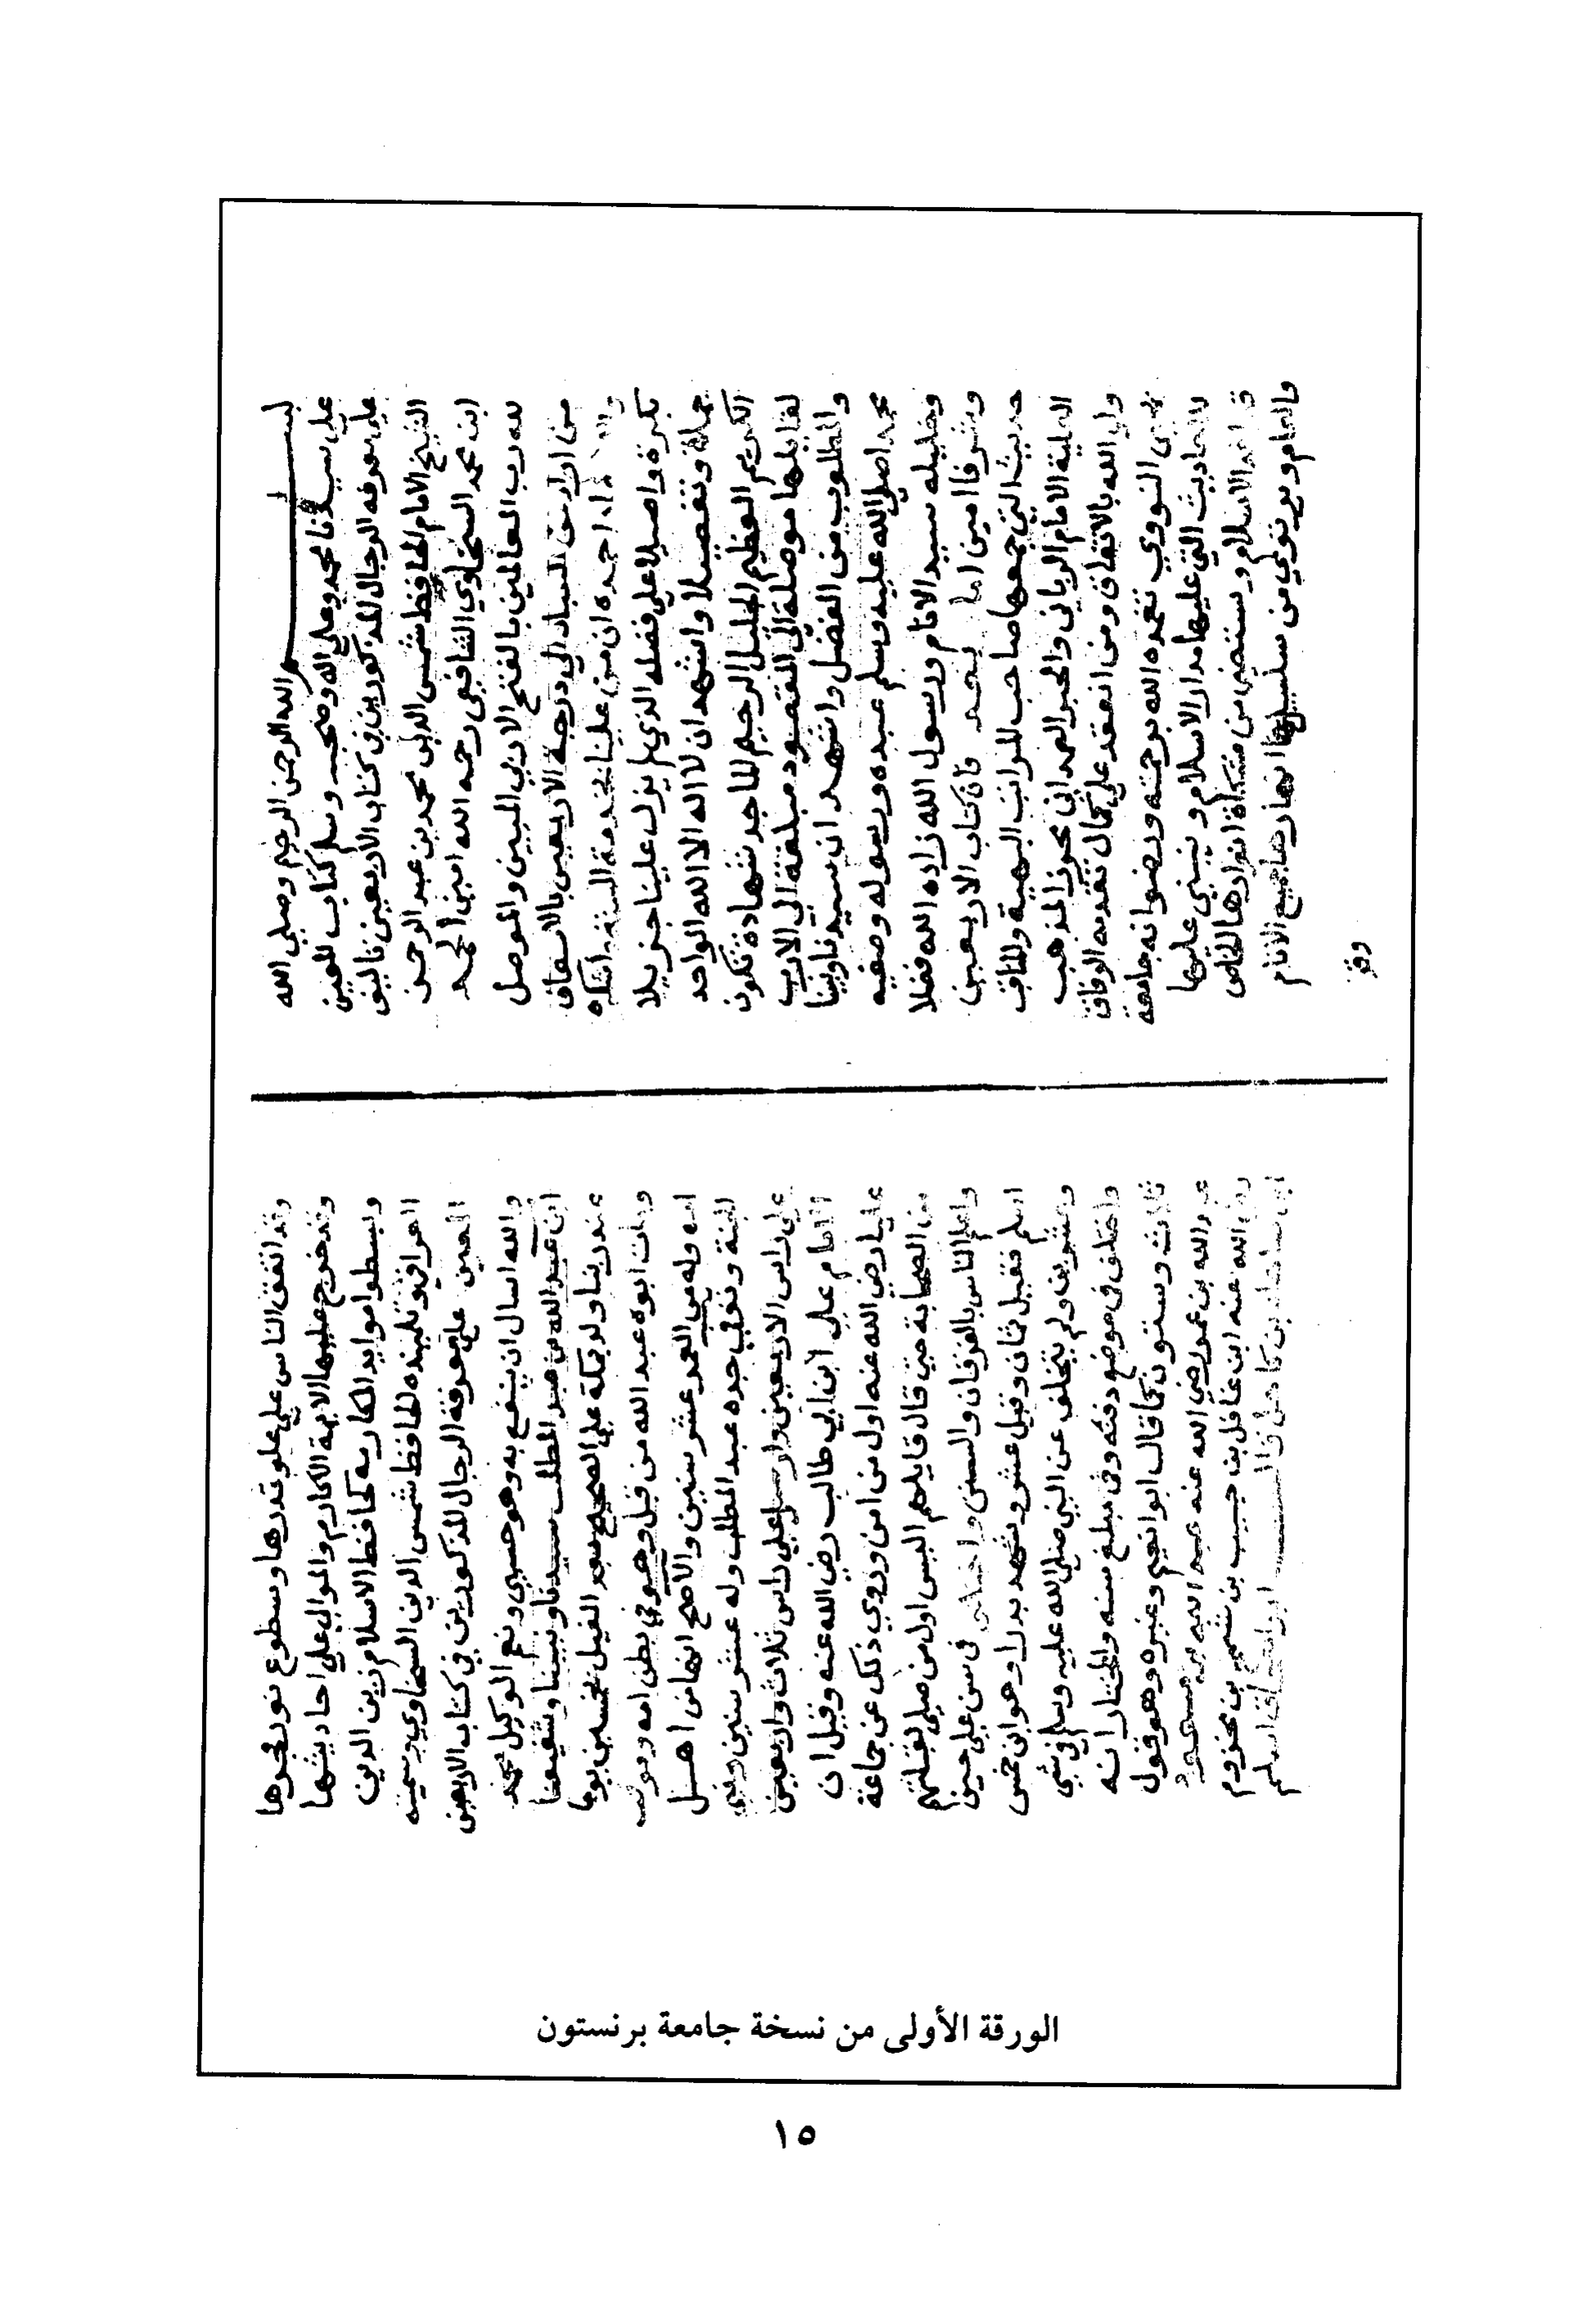 بسم الله الرحمن الرحيم وصلى الله
على سيدنا محمد وعلى اله وصحبه وسلم كتاب المعين
على معرفه الرجال المذكورين في كتاب الأربعين تاليف
الشيخ الامام الحافظ شمس الدين محمد بن عبد الرحمن
ابن محمد السخاوي الشافعي رحمه الله امين الحمد
لله رب العالمين بالفتح الادبي المبين والموصل
من اراد من العباد الي درجة الأربعين بالاسعاف
احمده ان من علينا بخدمة السنة واشكره
بكرة واصيلا علي فضله الذي لم يزل علينا جزيلا
جملة وتفصيلا واشهد ان لا اله الا الله الواحد
الكريم العظيم الجليل الرحيم الماجد شهادة تكون
لقايلها موصلة الي المقصود مبلغة الي الارب
والمطلوب من الفضل واشهد ان سيدنا ونبينا
محمدا صلي الله عليه وسلم عبده ورسوله وصفيه
وخليله سيد الانام ورسول الله زاده الله فضلا
وشرفا امين اما بعد فان كتاب الاربعين
حديث التي جمعها صاحب المراتب البهية والمناقب
العلية الامام الرباني والحبر الصمداني محرر المذهب
ولي الله بالاتفاق ومن انعقد علي كمال تقدمه الوفاق
محيي النووي تغمده الله برحمته ورضوانه جامعة
للاحاديث التي عليها مدار الاسلام وينبني عليها
قواعد الاسلام ويستضي من مشكاة انوارها الخاص
والعام ويرتوي من سلسبيل انهارها جميع الانام
وقد
وقد اتفق الناس علي علو قدرها وسطوع نور فجرها
وقد خرج عليها الايمة الاكارم والموالي علي احاديثها
وبسطوا موايد المكارم كالحافظ الاسلام زين الدين
العراقي وتلميذه الحافظ شمس الدين السخاوي وسميته
المعين علي معرفة الرجال المذكورين في كتاب الاربعين
والله اسال ان ينفع به وهو حسبي ونعم الوكيل محمد
ابن عبد الله بن عبد المطلب سيدنا ونبينا وشفيعنا
عند ربنا ولد بمكة علي الصحيح بعد الفيل بخمسين يوما
ومات ابوه عبد الله من قبل وهو في بطن امه وموت
امه وله من العمر عشر سنين والاصح انها من اهل
الجنة وتوفي جده عبد المطلب وله عشر سنين ونبي
علي راس الاربعين وارسل علي راس ثلاث واربعين
الامام علي ابن ابي طالب رضي الله عنه وقيل ان
عليا رضي الله عنه اول من امن وروي ذلك عن جماعة
من الصحابة حتي قال قايلهم اليس اول من صلي لقبلتكم
واعلم الناس بالفرقان والسنن واختلف في سن علي حين
اسلم فقيل ثمان وقيل عشر وشهد بدرا وهو ابن خمس
وعشرين ولم يتخلف عن النبي صلي الله عليه وسلم في شي
واختلف في موضع دفنه وفي مبلغ سنه والمختار انه
ثلاث وستون كما قال ابو نعيم وغيره وهو قول
عبد الله بن عمر رضي الله عنه عبد الله بن مسعود
رضي الله عنه ابن غافل بن حبيب بن شمخ بن مخزوم
الورقة الأولى من نسخة جامعة برنستون
١٥